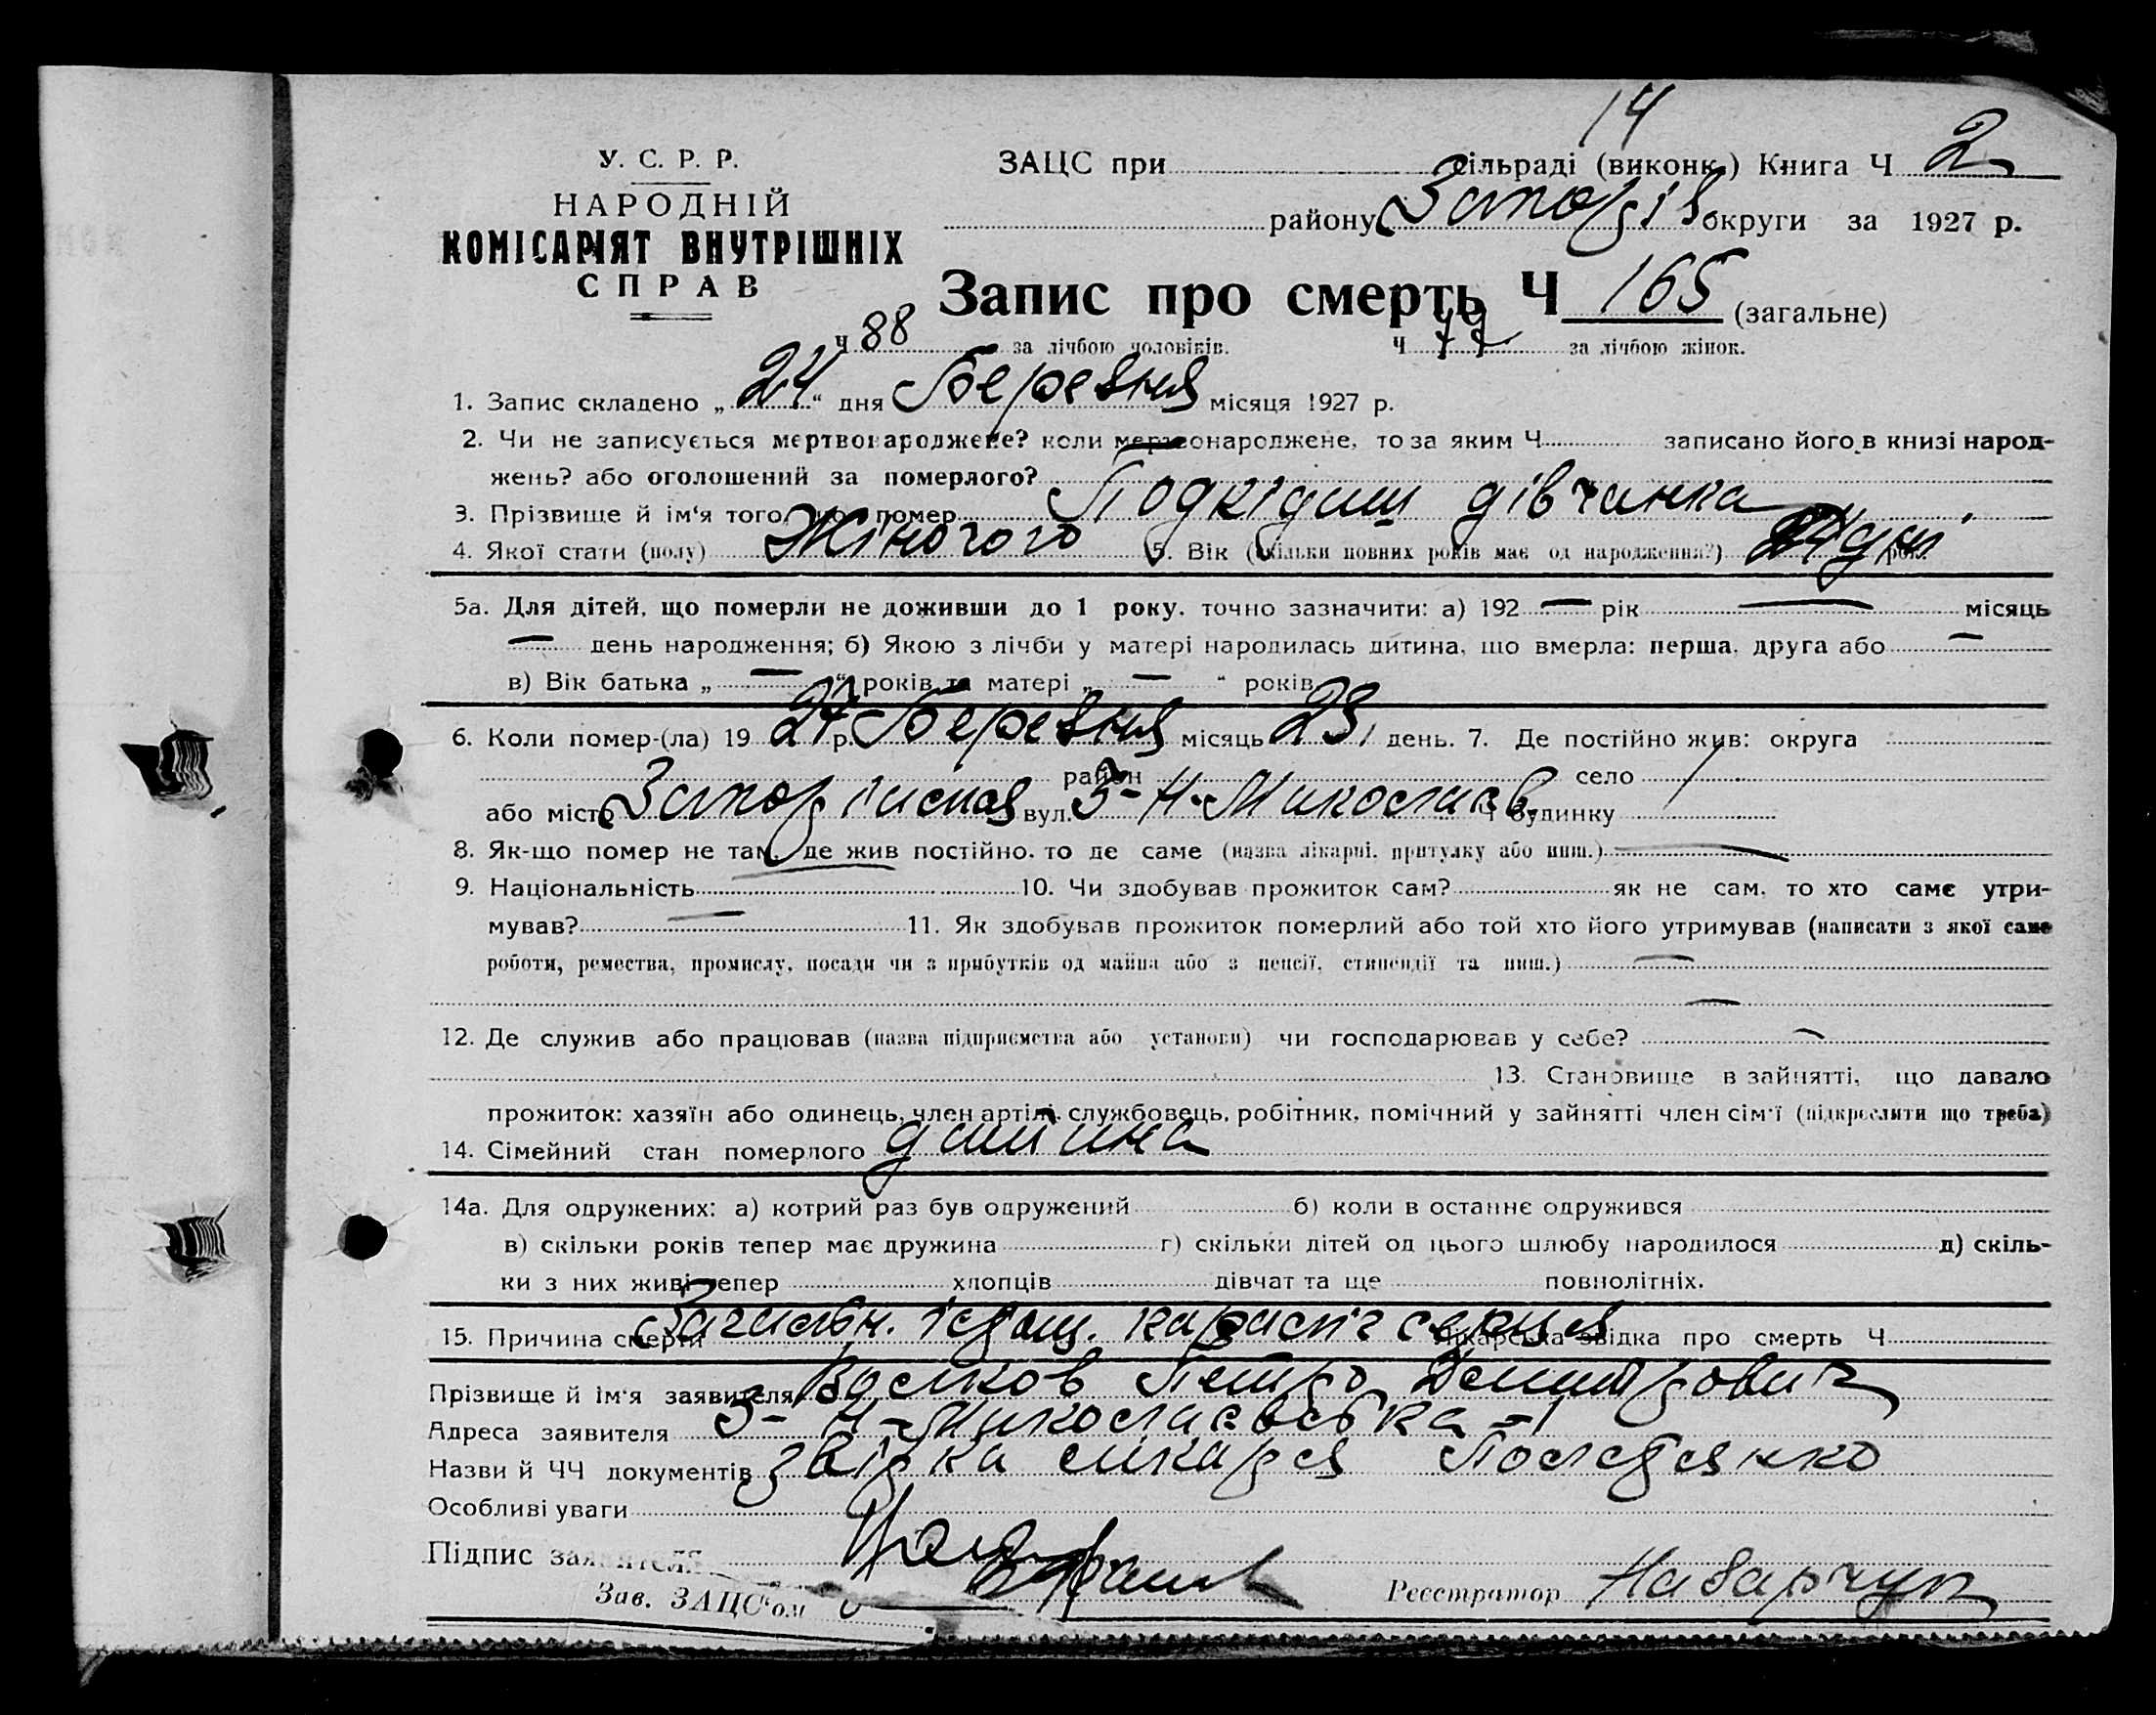 14
У. С. Р. Р.
НАРОДНІЙ
КОМІСАРІЯТ ВНУТРІШНІХ
СПРАВ
ЗАЦС при сільраді (виконк.) Книга Ч 2
району Запоріз округи за 1927 р.
Запис про смерть Ч 165 (загальне)
Ч 88 за лічбою чоловіків. Ч 77 за лічбою жінок.
1. Запис складено „ 24 “ дня Березня місяця 1927 р.
2. Чи не записується мертвонароджене? коли мертвонароджене, то за яким Ч записано його в книзі народ-
жень? або оголошений за померлого?
3. Прізвище й ім'я того, що помер Подкідиш дівчинка
4. Якої стати (полу) Жіночого 5. Вік (скільки повних років має од народження?) дні рок.
5а. Для дітей, що померли не доживши до 1 року, точно зазначити: а) 192 — рік — місяць
— день народження; б) Якою з лічби у матері народилась дитина, що вмерла: перша, друга або —
в) Вік батька „ — “ років та матері „ — “ років
6. Коли помер-(ла) 19 27 р. Березня місяць 23 день. 7. Де постійно жив: округа
район село
або місто Запоріжжя вул. 3-Н-Миколаїв. Ч будинку
8. Як-що помер не там, де жив постійно, то де саме (назва лікарні, притулку або инш.) —
9. Національність — 10. Чи здобував прожиток сам? як не сам, то хто саме утри-
мував? — 11. Як здобував прожиток померлий або той хто його утримував (написати з якої саме
роботи, ремества, промислу, посади чи з прибутків од майна або з пенсії, стипендії та инш.) —
—
12. Де служив або працював (назва підприємства або установи) чи господарював у себе? —
13. Становище в зайнятті, що давало
прожиток: хазяїн або одинець, член артілі, службовець, робітник, помічний у зайнятті член сім'ї (підкреслити що треба)
14. Сімейний стан померлого дитина
14а. Для одружених: а) котрий раз був одружений б) коли в останнє одружився
в) скільки років тепер має дружина г) скільки дітей од цього шлюбу народилося д) скіль-
ки з них живі тепер хлопців дівчат та ще повнолітніх.
15. Причина смерті параліч серця Лікарська звідка про смерть Ч
Прізвище й ім'я заявителя Петро Дмитрович
Адреса заявителя 3-Н-Миколаєвська-1
Назви й ЧЧ документів звідка лікаря
Особливі уваги
Підпис заявителя
Зав. ЗАЦС'ом Реєстратор